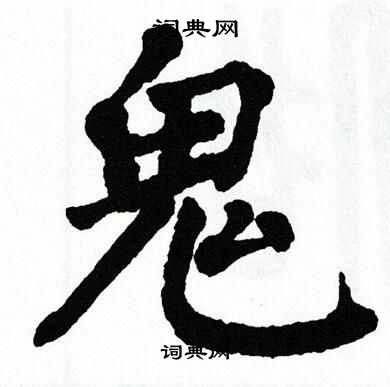 词典网
鬼
词典网